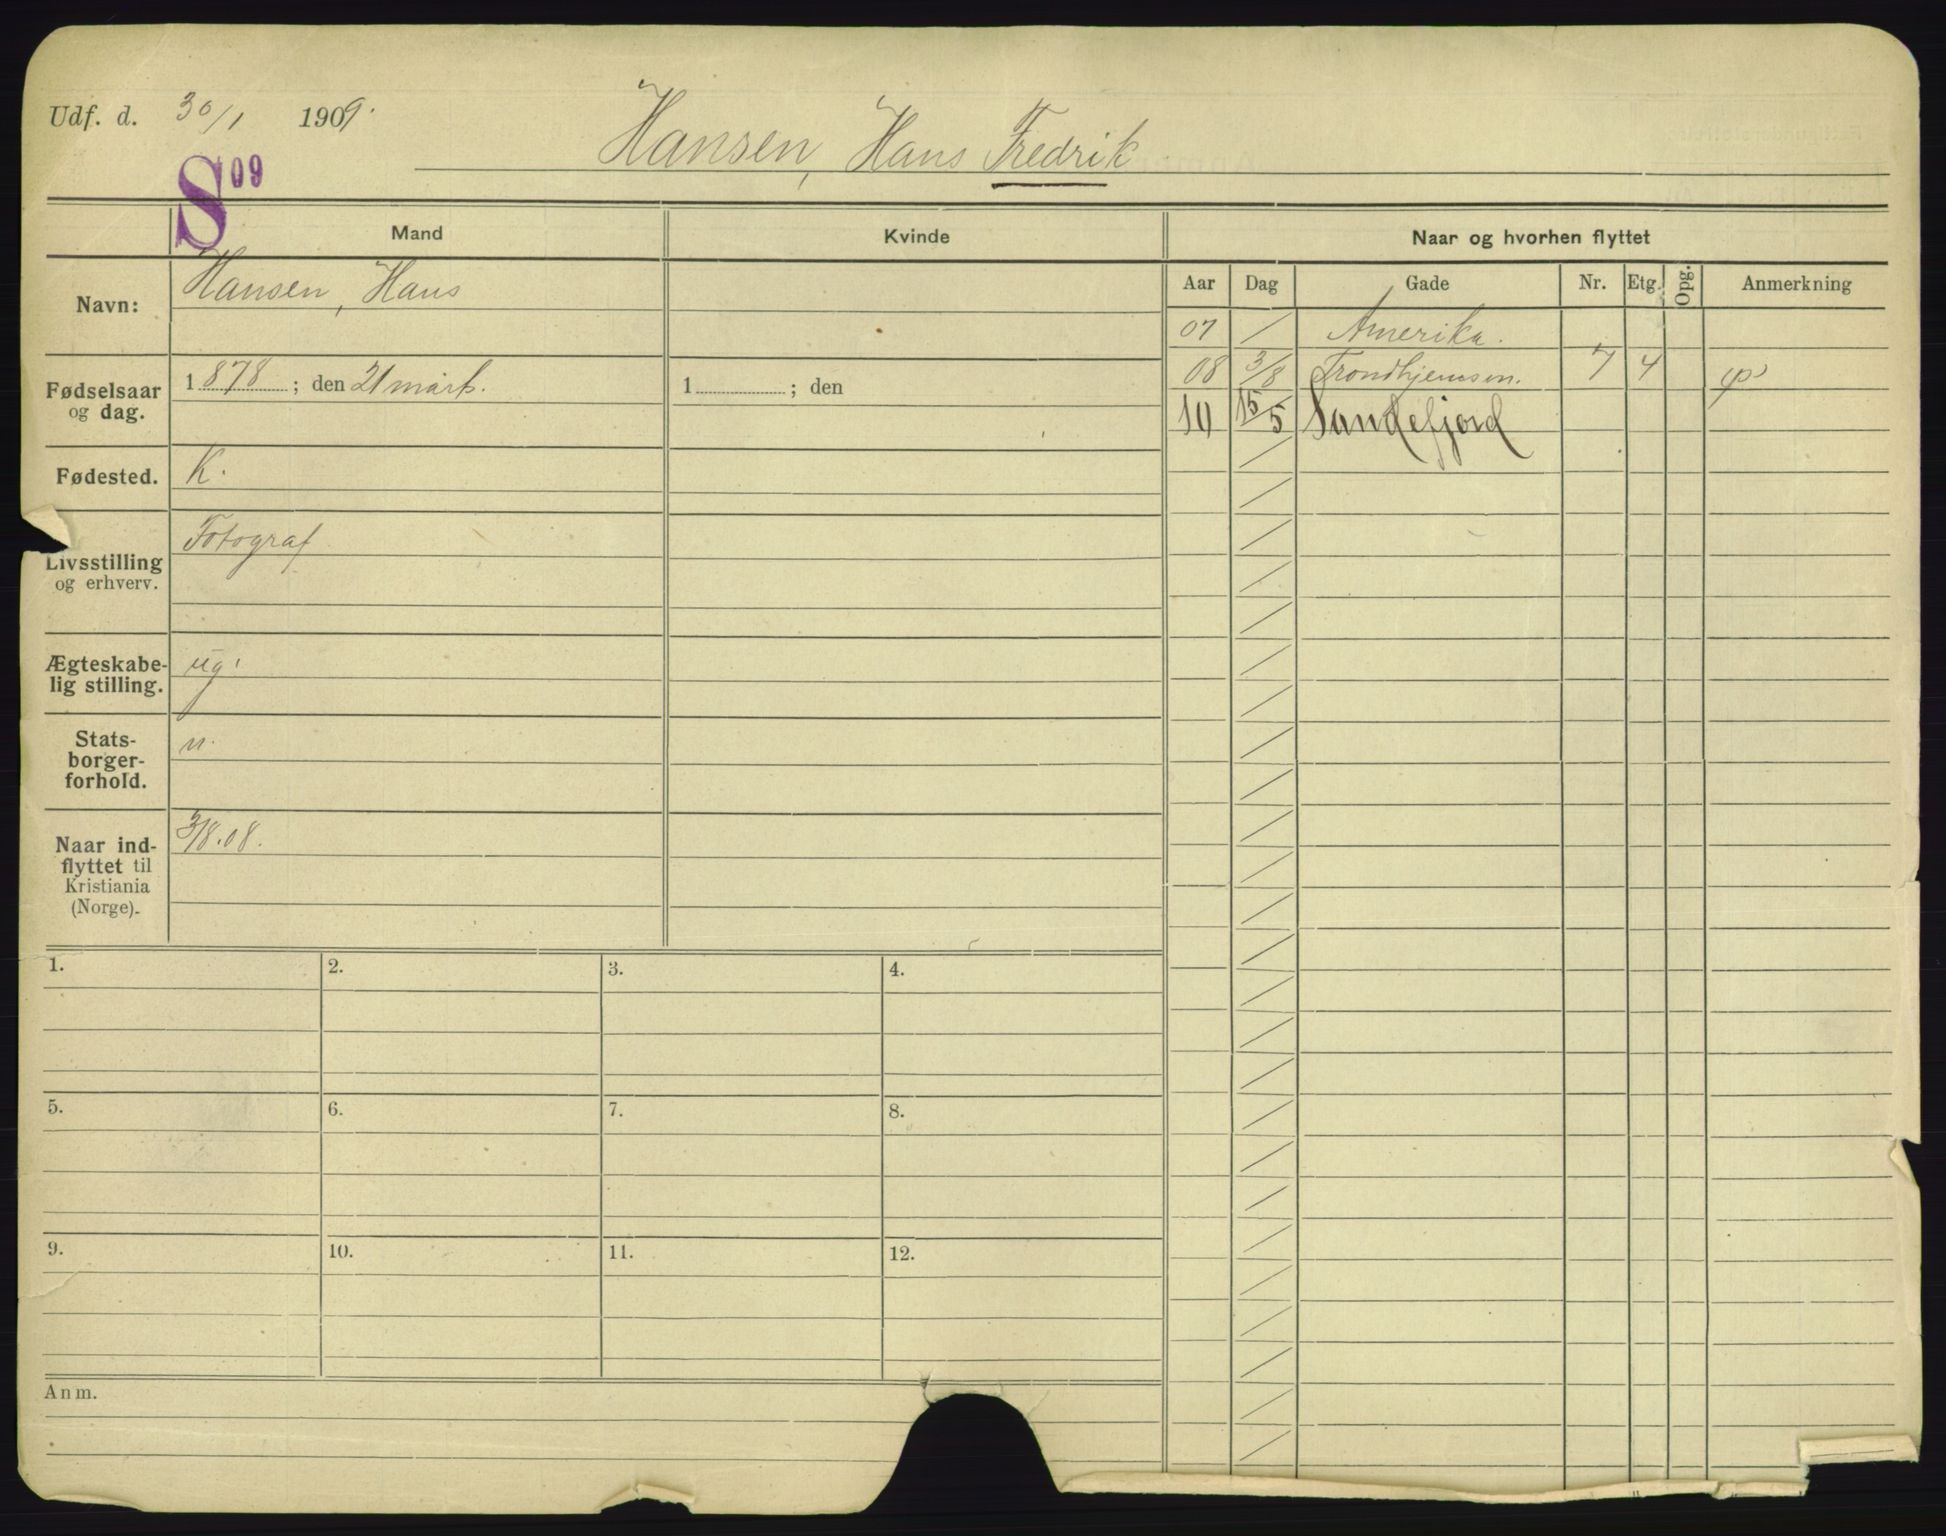 Udf. d. 30/1 1909.
Hansen, Hans Fredrik
S 09
Mand
Kvinde
Naar og hvorhen flyttet
Navn:
Hansen, Hans
Aar Dag Gade Nr. Etg. Opg. Anmerkning
07 / Amerika.
08 3/8 Trondhjemsvn. 7 4
10 15/5 Sandefjord
Fødselsaar
og dag.
1878; den 21 marts.
1 ; den
Fødested.
K.
Livsstilling
og erhverv.
Fotograf
Ægteskabe-
lig stilling.
ug.
Stats-
borger-
forhold.
n.
Naar ind-
flyttet til
Kristiania
(Norge).
3/8.08.
1. 2. 3. 4.
5. 6. 7. 8.
9. 10. 11. 12.
Anm.